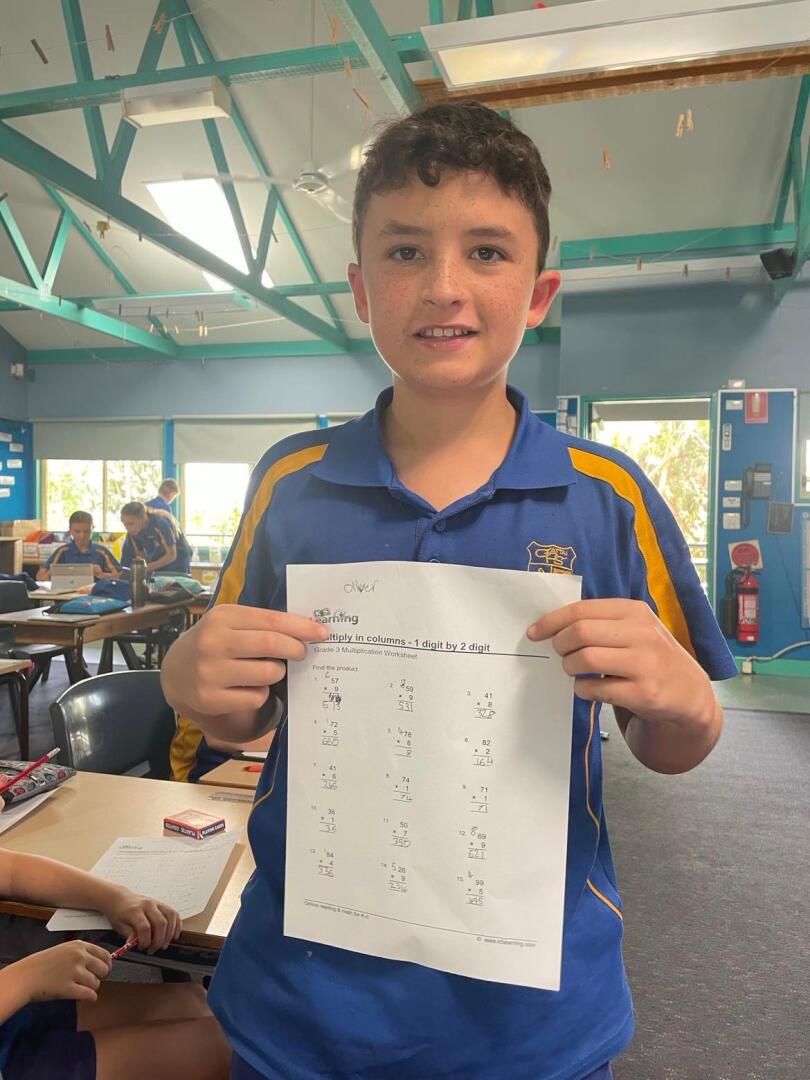 oliver
Learning
Multiply in columns - 1 digit by 2 digit
Grade 3 Multiplication Worksheet
Find the product.
1. 57 2. 8 59 3. 41
× 9 × 9 × 8
613 531 328
4. 1 72 5. 4 78 6. 82
× 5 × 6 × 2
660 8 164
7. 41 8. 74 9. 71
× 6 × 1 × 1
246 74 71
10. 36 11. 50 12. 8 69
× 1 × 7 × 9
36 350 621
13. 1 84 14. 5 26 15. 4 99
× 4 × 9 × 5
336 234 495
Online reading & math for K-5
© www.k5learning.com